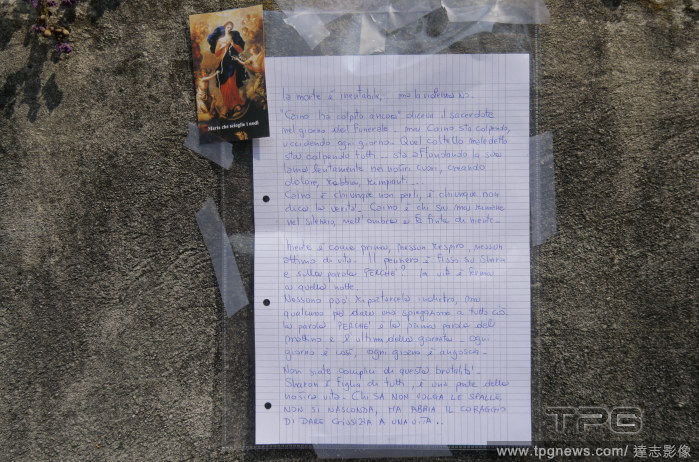 Maria che scioglie i nodi
La morte è inevitabile, ma la violenza no.
"Caino ha colpito ancora" diceva il sacerdote
nel giorno del funerale ma Caino sta colpendo,
uccidendo, ogni giorno. Quel coltello maledetto
sta colpendo tutti... sta affondando la sua
lama lentamente nei nostri cuori, creando
dolore, rabbia, rimpianti...
Caino è chiunque non parli, è chiunque non
dica la verità. Caino è chi sa ma rimane
nel silenzio, nell'ombra e fa finta di niente...
Niente è come prima, nessun respiro, nessun
attimo di vita. Il pensiero è fisso su Sharon
e sulla parola PERCHÉ? la vita è ferma
a quella notte.
Nessuno potrà riportarcela indietro, ma
qualcuno può dare una spiegazione a tutto ciò.
La parola PERCHÉ è la prima parola del
mattino e l'ultima della giornata... ogni
giorno è così, ogni giorno è angoscia...
Non siate complici di questa brutalità!
Sharon è figlia di tutti, è una parte della
nostra vita. CHI SA NON VOLGA LE SPALLE,
NON SI NASCONDA, MA ABBIA IL CORAGGIO
DI DARE GIUSTIZIA A UNA VITA..
TPG
www.tpgnews.com/ 達志影像